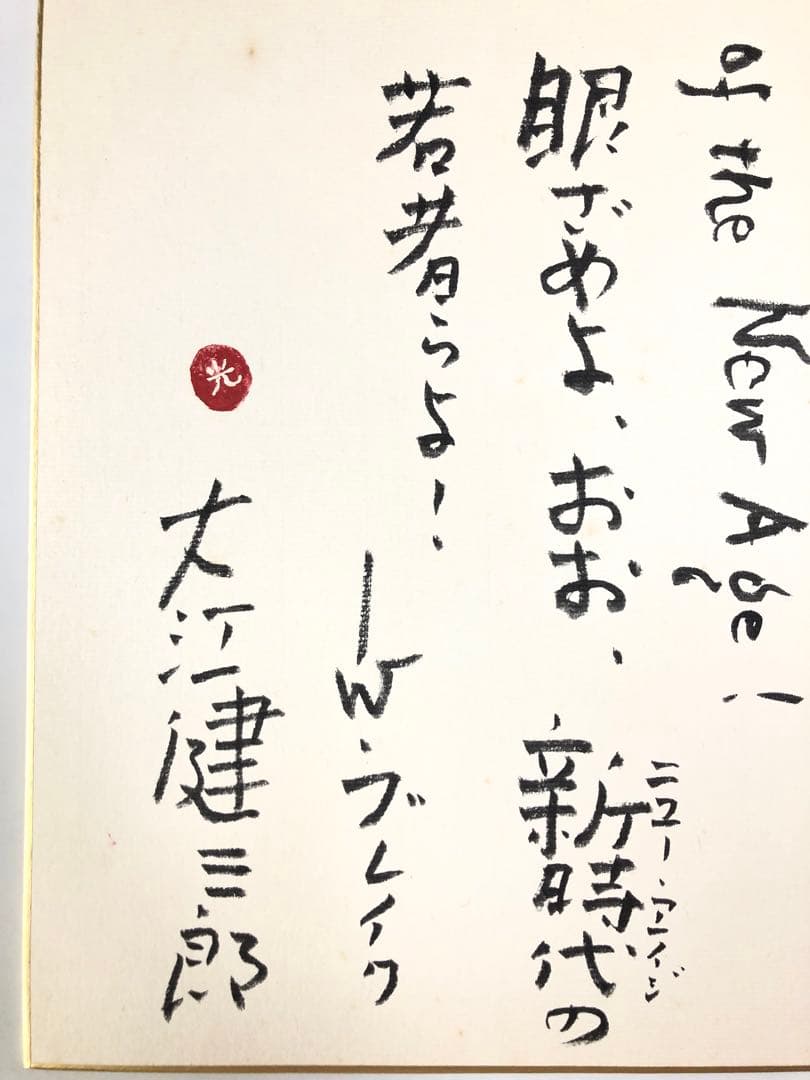 of the New Age!
眼ざめよ、おお、新時代の
ニュー・エイジ
若者らよ!
―W・ブレイク
光
大江健三郎